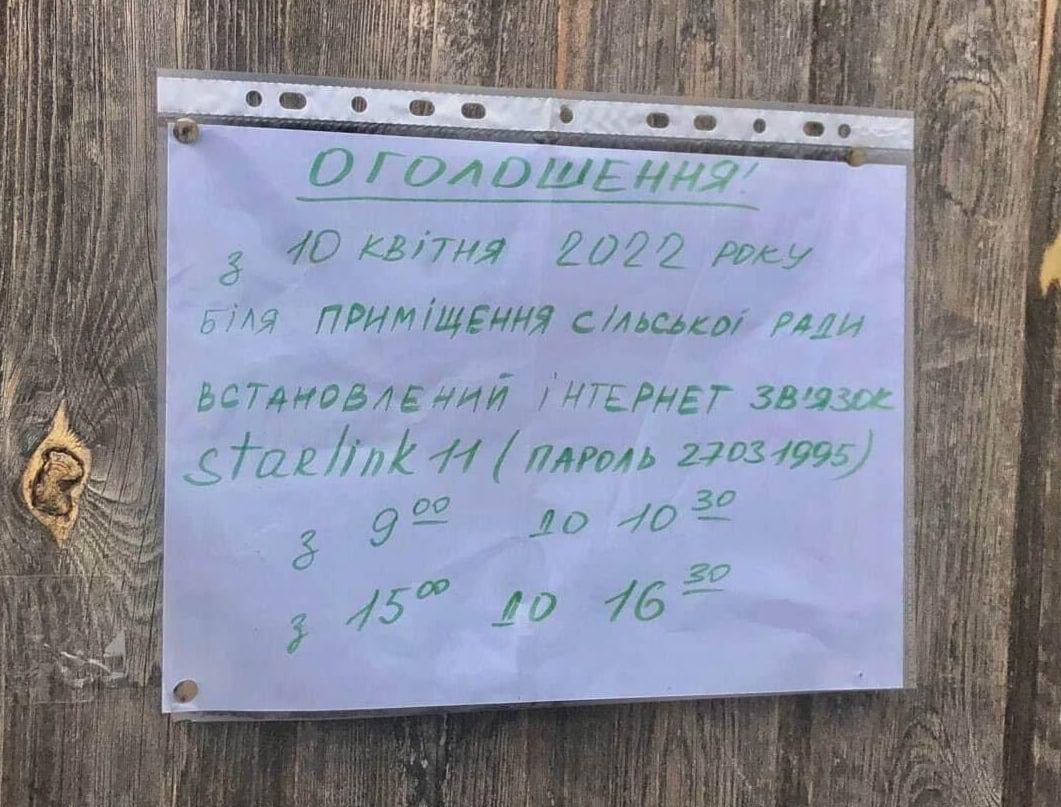 ОГОЛОШЕННЯ!
з 10 квітня 2022 року
біля приміщення сільської ради
встановлений інтернет зв'язок
starlink 11 (пароль 27031995)
з 9⁰⁰ до 10³⁰
з 15⁰⁰ до 16³⁰